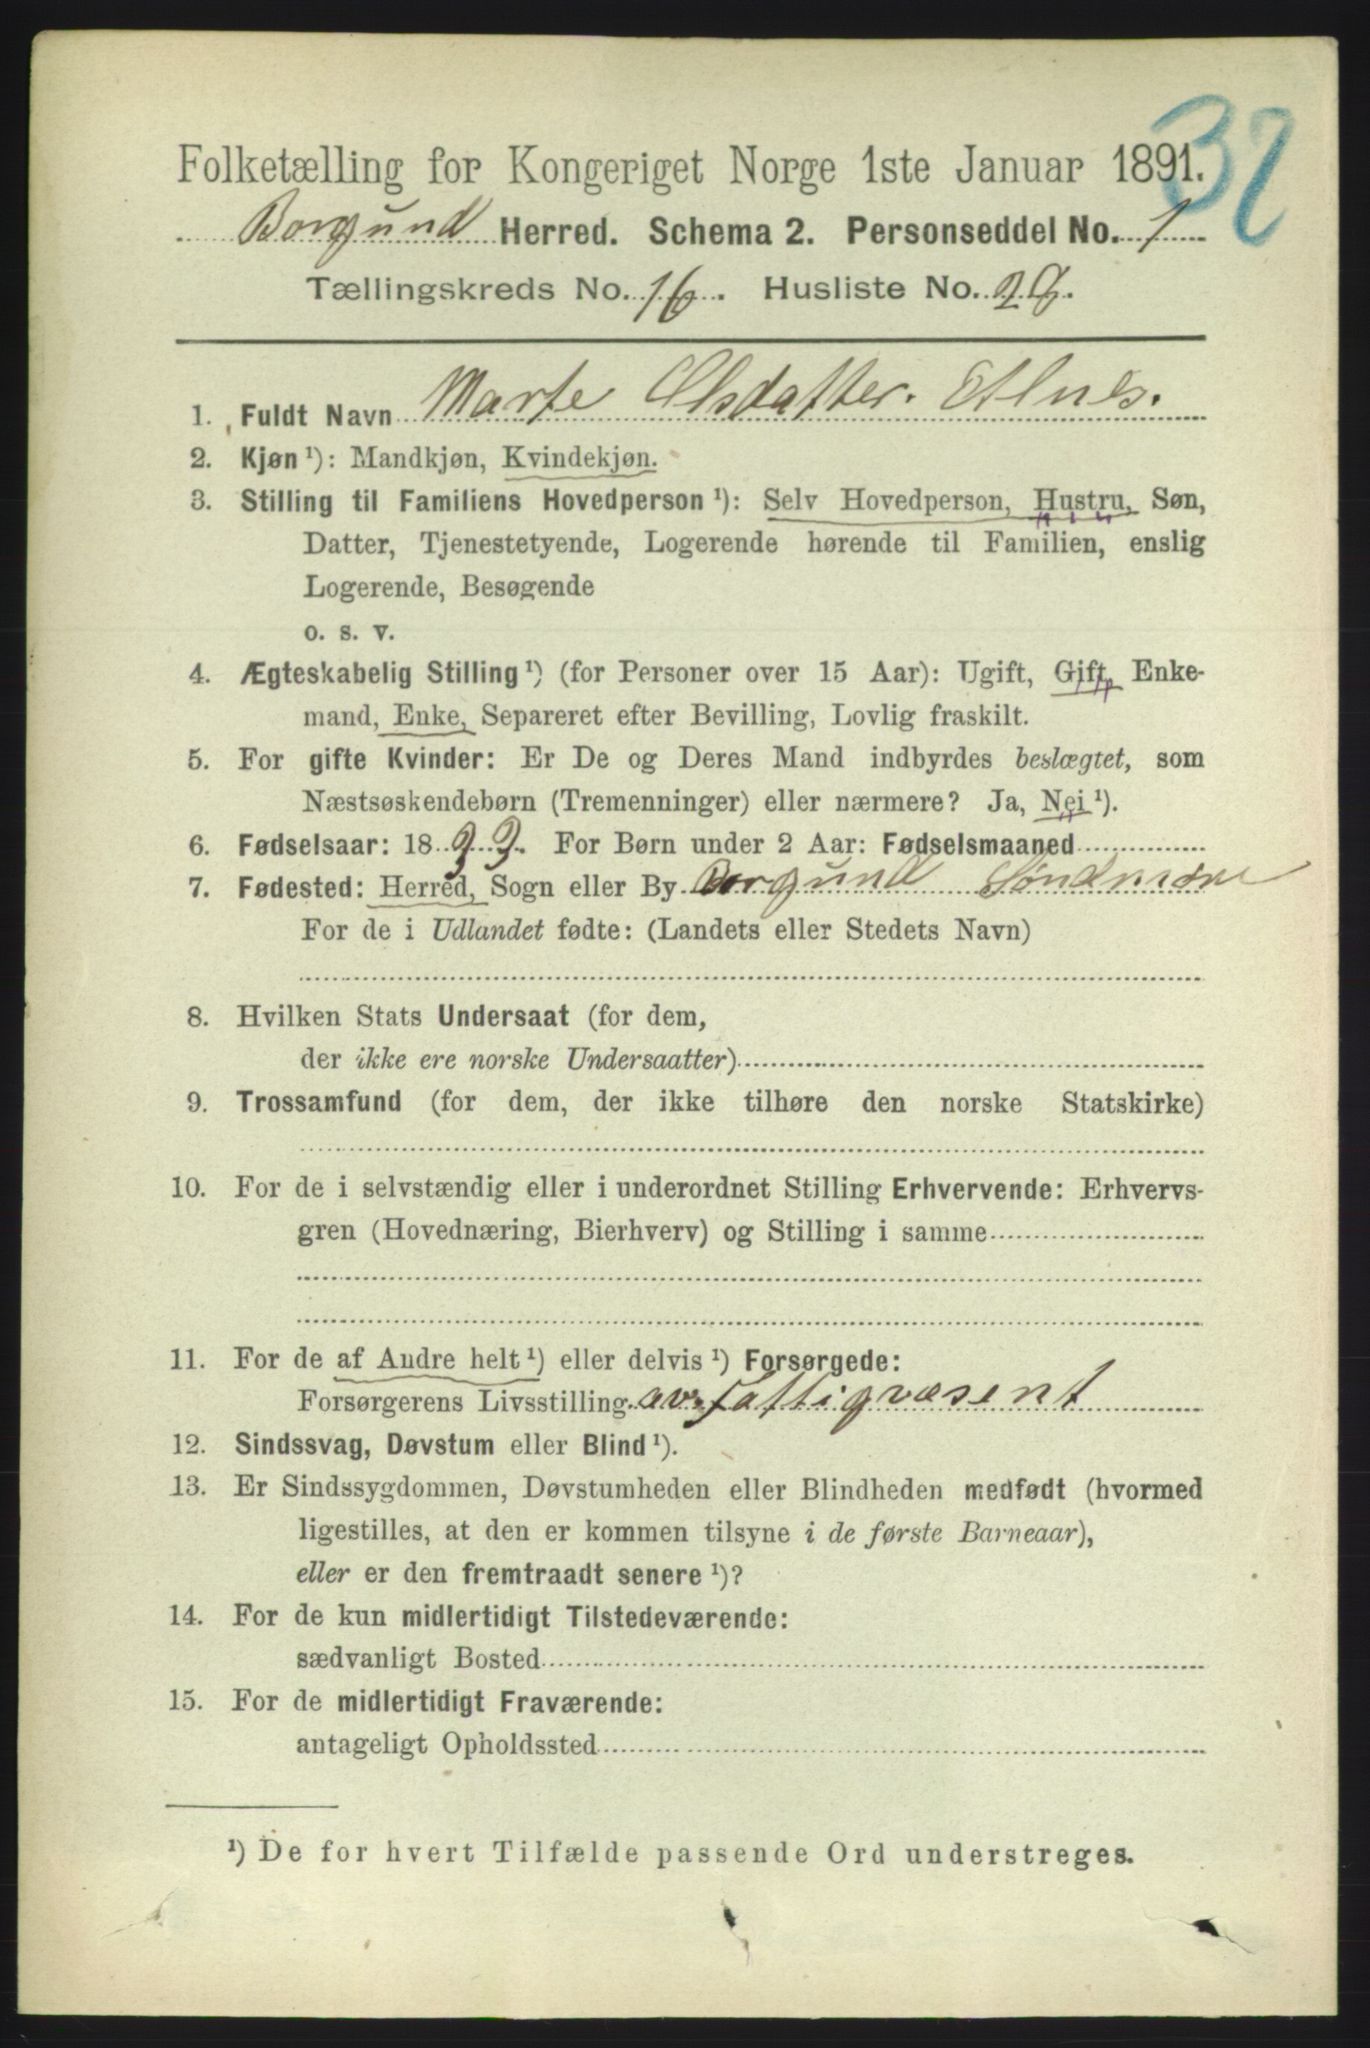 32
Folketælling for Kongeriget Norge 1ste Januar 1891.
Borgund Herred. Schema 2. Personseddel No. 1
Tællingskreds No. 16. Husliste No. 29.
1. Fuldt Navn Marte Olsdatter. Alnes.
2. Kjøn ¹): Mandkjøn, Kvindekjøn.
3. Stilling til Familiens Hovedperson ¹): Selv Hovedperson, Hustru, Søn,
Datter, Tjenestetyende, Logerende hørende til Familien, enslig
Logerende, Besøgende
o. s. v.
4. Ægteskabelig Stilling ¹) (for Personer over 15 Aar): Ugift, Gift, Enke-
mand, Enke, Separeret efter Bevilling, Lovlig fraskilt.
5. For gifte Kvinder: Er De og Deres Mand indbyrdes beslægtet, som
Næstsøskendebørn (Tremenninger) eller nærmere? Ja, Nei ¹).
6. Fødselsaar: 1833. For Børn under 2 Aar: Fødselsmaaned
7. Fødested: Herred, Sogn eller By Borgund Søndmøre
For de i Udlandet fødte: (Landets eller Stedets Navn)
8. Hvilken Stats Undersaat (for dem,
der ikke ere norske Undersaatter)
9. Trossamfund (for dem, der ikke tilhøre den norske Statskirke)
10. For de i selvstændig eller i underordnet Stilling Erhvervende: Erhvervs-
gren (Hovednæring, Bierhverv) og Stilling i samme
11. For de af Andre helt ¹) eller delvis ¹) Forsørgede:
Forsørgerens Livsstilling av. Fattigvæsent
12. Sindssvag, Døvstum eller Blind ¹).
13. Er Sindssygdommen, Døvstumheden eller Blindheden medfødt (hvormed
ligestilles, at den er kommen tilsyne i de første Barneaar),
eller er den fremtraadt senere ¹)?
14. For de kun midlertidigt Tilstedeværende:
sædvanligt Bosted
15. For de midlertidigt Fraværende:
antageligt Opholdssted
¹) De for hvert Tilfælde passende Ord understreges.